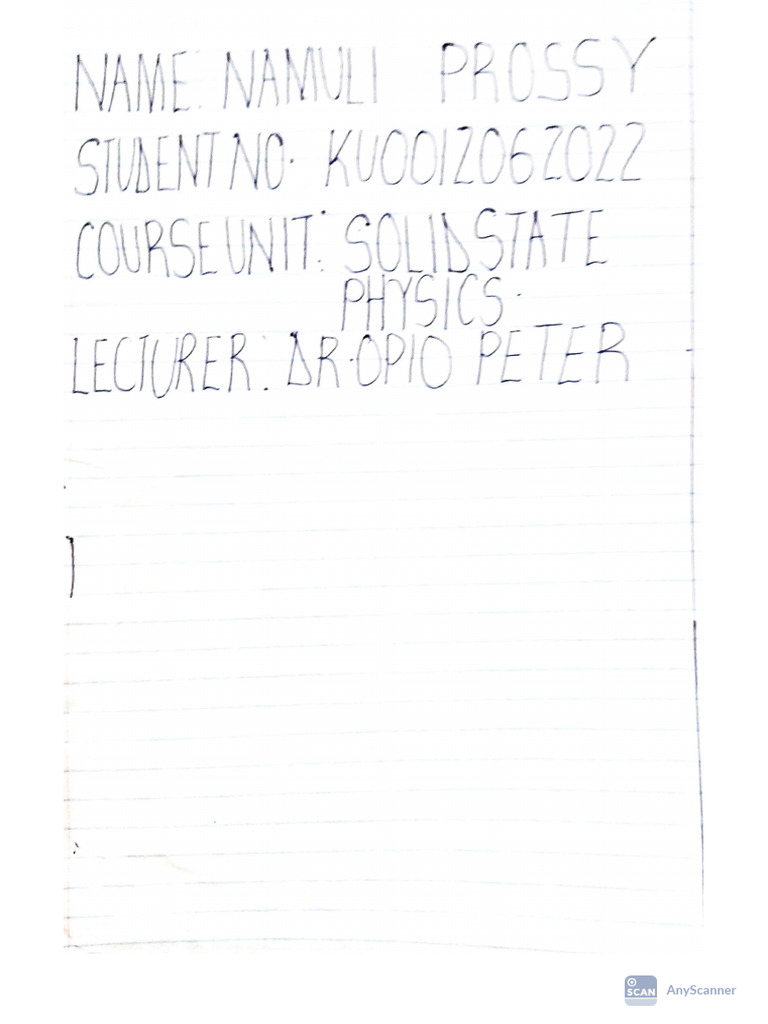 NAME: NAMULI PROSSY
STUDENT NO. KU0012062022
COURSE UNIT: SOLID STATE
PHYSICS.
LECTURER: DR. OPIO PETER
SCAN AnyScanner